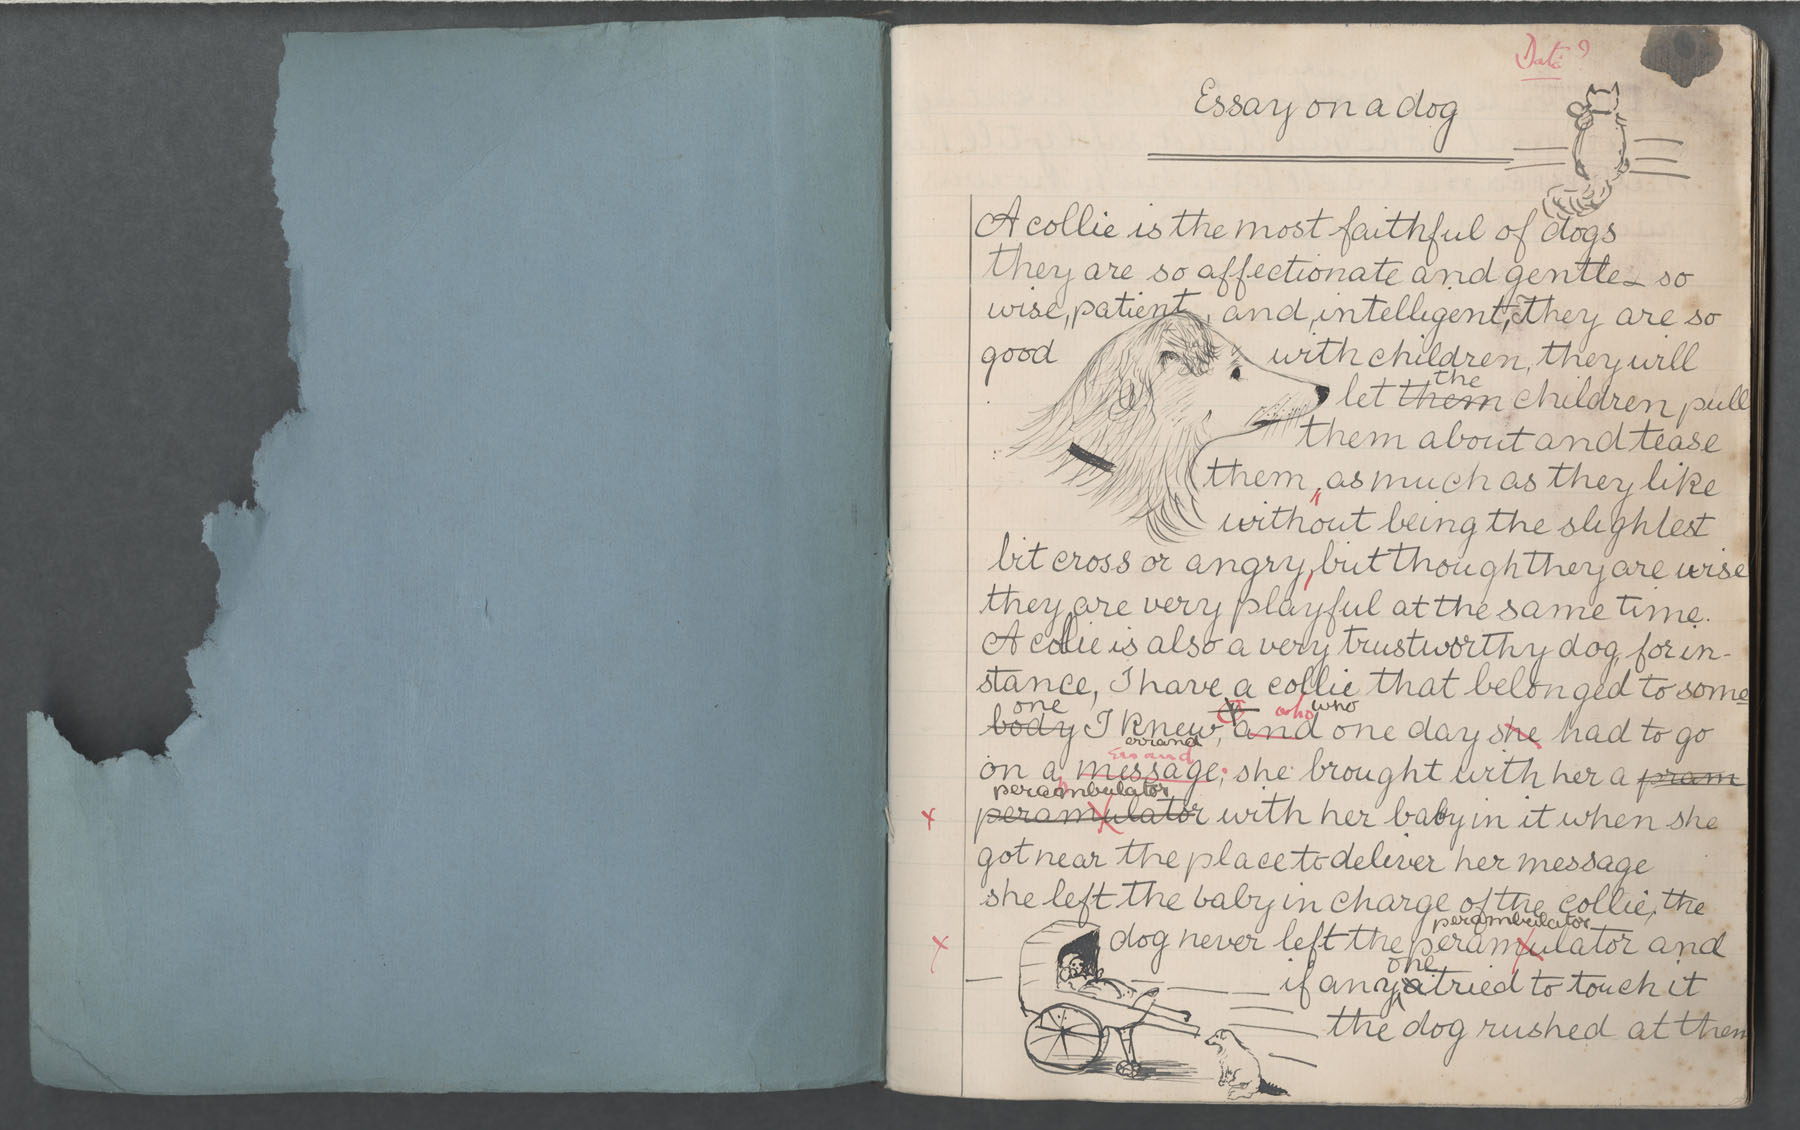 Date?
Essay on a dog
A collie is the most faithful of dogs
they are so affectionate and gentle so
wise, patient, and, intelligent, They are so
good with children, they will
the
let them children pull
them about and tease
them, as much as they like
without being the slightest
bit cross or angry, but though they are wise
they are very playful at the same time.
A collie is also a very trustworthy dog, for in-
stance, I have a collie that belonged to some
one who who
body I knew, and one day she had to go
errand
Errand
on a message; she brought with her a pram
perambulator
x peramulator with her baby in it when she
got near the place to deliver her message
she left the baby in charge of the collie, the
perambulator
x dog never left the peramulator and
one
if any tried to touch it
the dog rushed at them